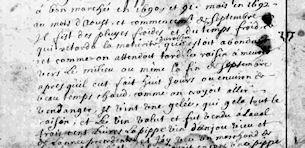 a bon marché en 1690 et 91. mais en 1692.
au mois d'Aoust et commencement de septembre
Il fist des pluyes froides et du temps froid
qui retarda la maturité qui estoit
et comme on attendoit tard les raisin a meurir
vers le milieu ou même la fin de septembre
apres quil eut fait huit jours ou environ de
beau temps chaud. comme on croyoit aller
vendanger, il vint une gelée, qui gela tout le
raisin, et Le vin valut et fut vendu a Laval
frois cent livres La pippe vin d'anjou vieu
37